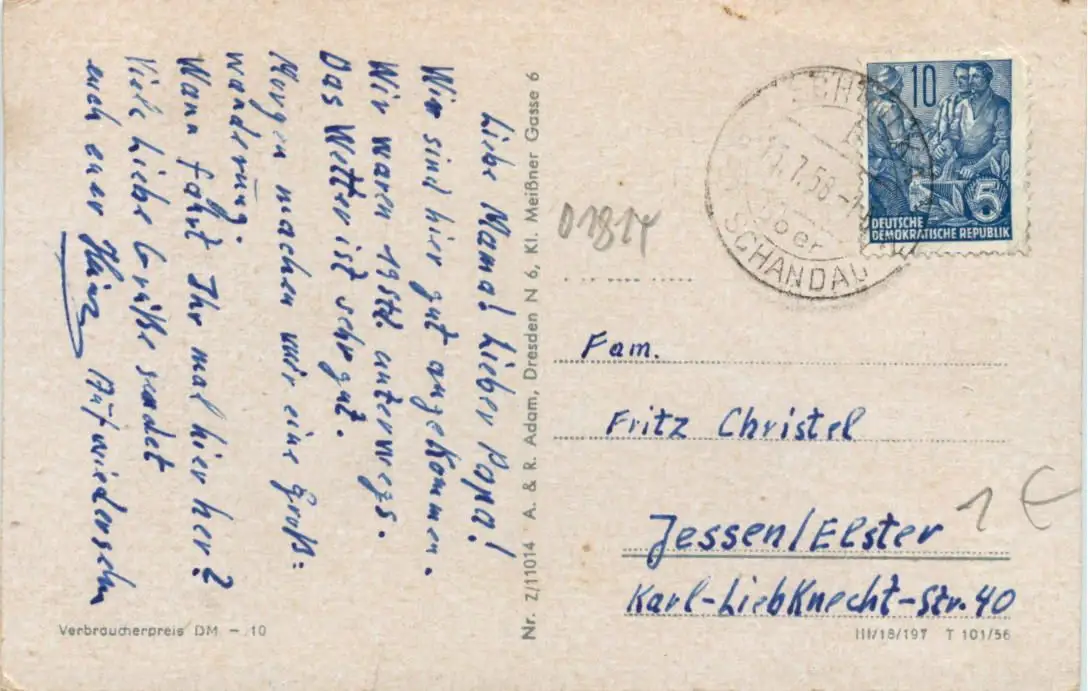 Liebe Mama! Lieber Papa!
Wir sind hier gut angekommen.
Wir waren 19 Std. unterwegs.
Das Wetter ist sehr gut.
Morgen machen wir eine Groß:
wanderung.
Wann fahrt Ihr mal hier her?
Viele liebe Grüße sendet
euch euer Heinz Auf wiedersehn
Verbraucherpreis DM -.10
Nr. Z/11014 A. & R. Adam, Dresden N 6, Kl. Meißner Gasse 6
10
5
DEUTSCHE
DEMOKRATISCHE REPUBLIK
7.58
über
SCHANDAU
01814
Fam.
Fritz Christel
Jessen/Elster
Karl-Liebknecht-Str. 40
1 €
III/18/197 T 101/56